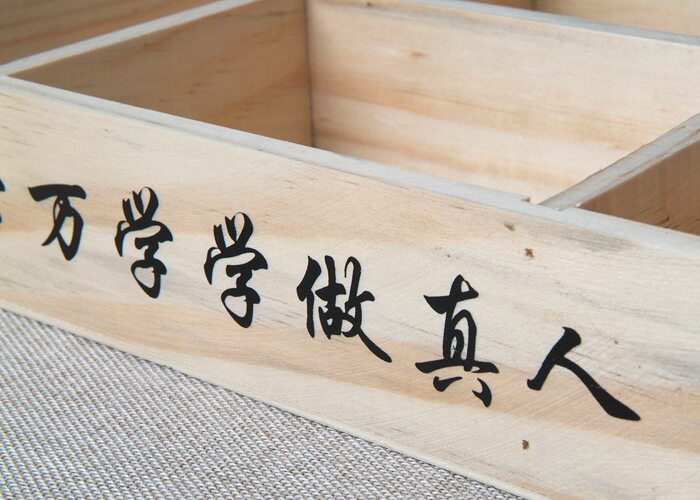 万学学做真人